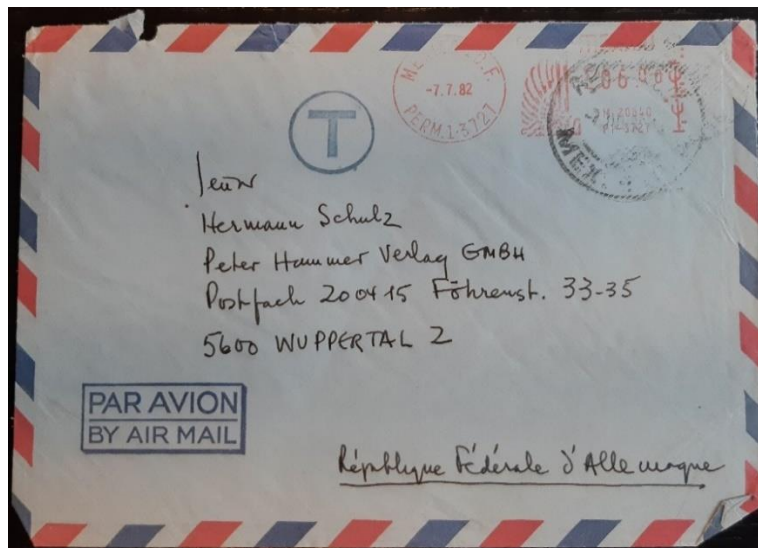 -7.7.82
PERM.1-3727
06
MEX
T
Hermann Schulz
Peter Hammer Verlag GMBH
Postfach 200415 Föhrenst. 33-35
5600 WUPPERTAL 2
PAR AVION
BY AIR MAIL
République Fédérale d'Allemagne